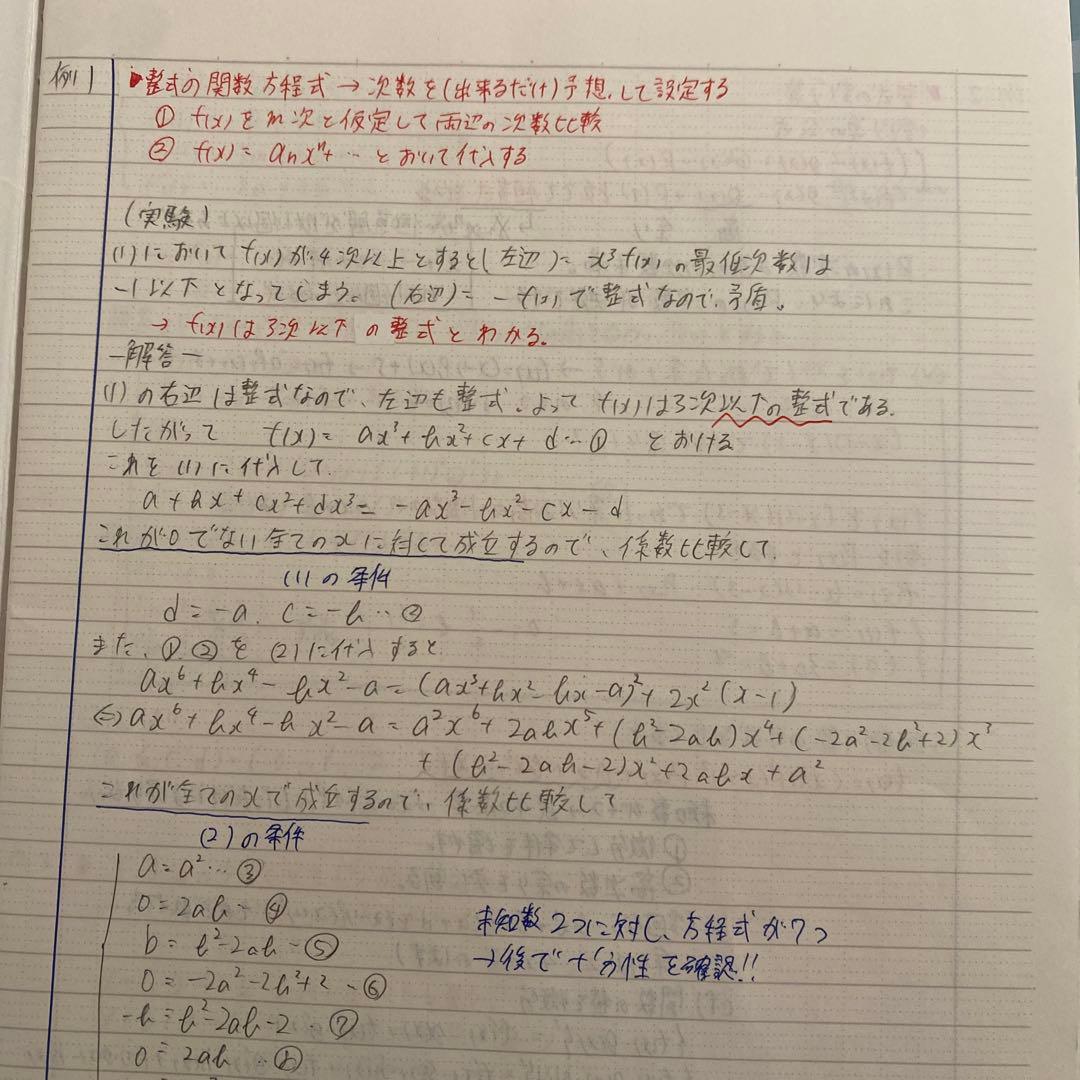 例1
整式の関数方程式→次数を(出来るだけ)予想して設定する
① f(x)をn次と仮定して両辺の次数比較
② f(x)=anxⁿ+… とおいて代入する
(実験)
(1)において f(x)が4次以上とすると(左辺)=x³f(x)の最低次数は
-1以下となってしまう。(右辺)=-f(x)で整式なので、矛盾。
→f(x)は3次以下の整式とわかる。
-解答-
(1)の右辺は整式なので、左辺も整式、よって f(x)は3次以下の整式である。
したがって f(x)= ax³+bx²+cx+d…① とおける
これを(1)に代入して、
a+bx+cx²+dx³=-ax³-bx²-cx-d
これが0でない全てのxに対して成立するので、係数比較して、
(1)の条件
d=-a, c=-b…②
また、①②を(2)に代入すると
ax⁶+bx⁴-bx²-a=(ax³+bx²-bx-a)²+2x²(x-1)
⇔ax⁶+bx⁴-bx²-a=a²x⁶+2abx⁵+(b²-2ab)x⁴+(-2a²-2b²+2)x³
+(b²-2ab-2)x²+2abx+a²
これが全てのxで成立するので、係数比較して
(2)の条件
a=a²…③
0=2ab…④
b=b²-2ab…⑤
0=-2a²-2b²+2…⑥
未知数2つに対し、方程式が7つ
→後で十分性を確認!!
-b=b²-2ab-2…⑦
0=2ab…⑧